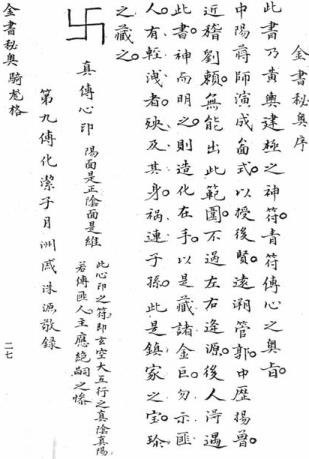 金書秘奧序
此書乃黃輿建極之神符青符傳心之奧旨
中陽蔣師演成圖式以授後賢遠溯管郭中歷楊曾
近稽劉賴無能出此範圍不過左右逢源後人淂遇
此書神而明之則造化在手以是藏諸金匱勿示匪
人有輕洩者殃及其身禍連子孫此是鎮家之宝珍
之藏之
卍
真傳心印 陽面是正陰面是維
此心印之符即玄空大五行之真陰真陽
若傳匪人主應絶嗣之慘
第九傳化潔子月洲戚洙源敬録
金書秘奧騎龍格
二七